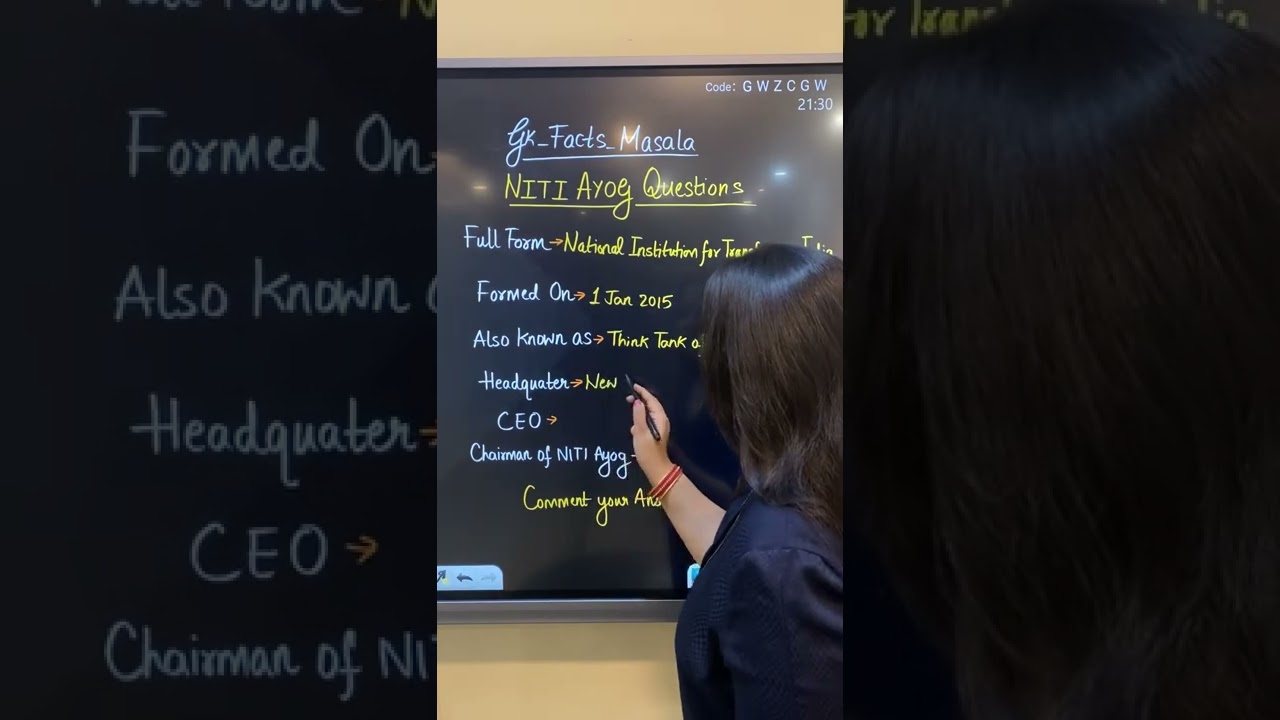 Code: G W Z C G W
21:30
Gk_Facts_Masala
NITI AYOG Questions
Full Form→National Institution for
Formed On→1 Jan 2015
Also known as→Think Tank
Headquater→New
CEO→
Chairman of NITI Ayog
Comment your